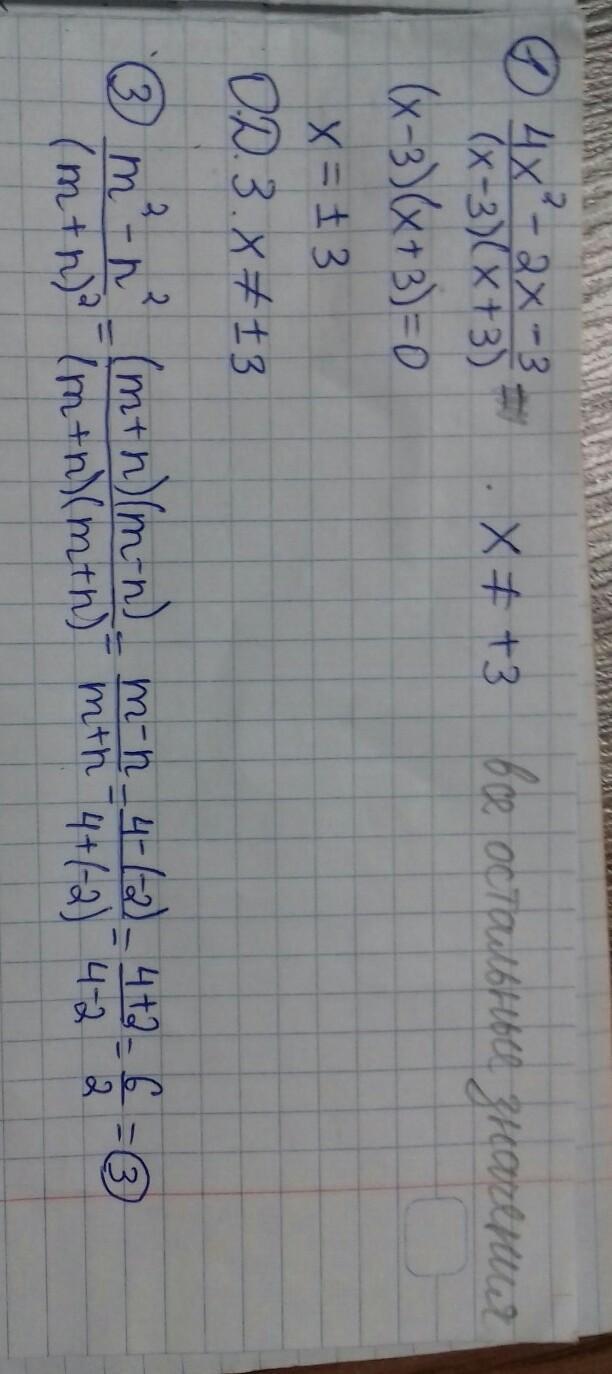 ① (4x² - 2x - 3)/((x-3)(x+3)) . x ≠ +3 все остальные значения
(x-3)(x+3)=0
x = ±3
О.D.З. x ≠ ±3
③ (m² - n²)/((m+n)²) = ((m+n)(m-n))/((m+n)(m+n)) = (m-n)/(m+n) = (4-(-2))/(4+(-2)) = (4+2)/(4-2) = 6/2 = ③